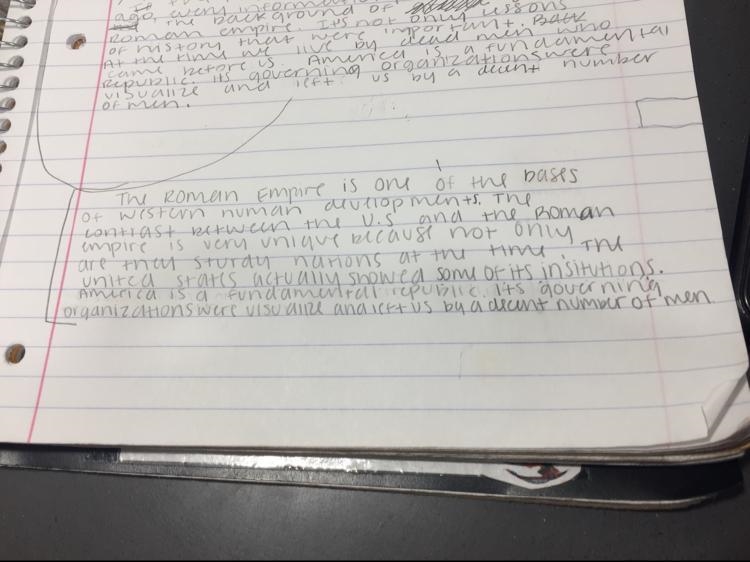 ago, very information
the background of lessons
Roman empire. It's not only
of history that were important. Back
At the time we live by dead men who
came before us. America is a fundamental
Republic. Its governing organizations were
visualize and left us by a decent number
of men.
The Roman Empire is one of the bases
of western human developments. The
contrast between the U.S and the Roman
empire is very unique because not only
are they sturdy nations at the time. The
united states actually showed some of its insitutions.
America is a fundamental republic. Its governing
organizations were visualize and left us by a decent number of men.